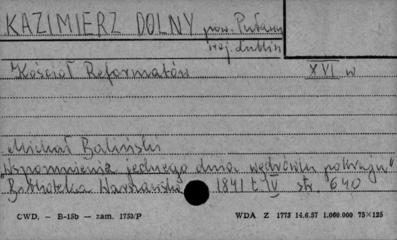 KAZIMIERZ DOLNY pow. Puławy
woj. lublin
Kościół Reformatów XVI w
Michał Baliński
"Wspomnienia jednego dnia wędrówki po kraju"
Biblioteka Warszawska 1841 t. IV str. 640
CWD. - B-15b - zam. 1753/P WDA Z 1773 14.6.57 1.060.000 75×125